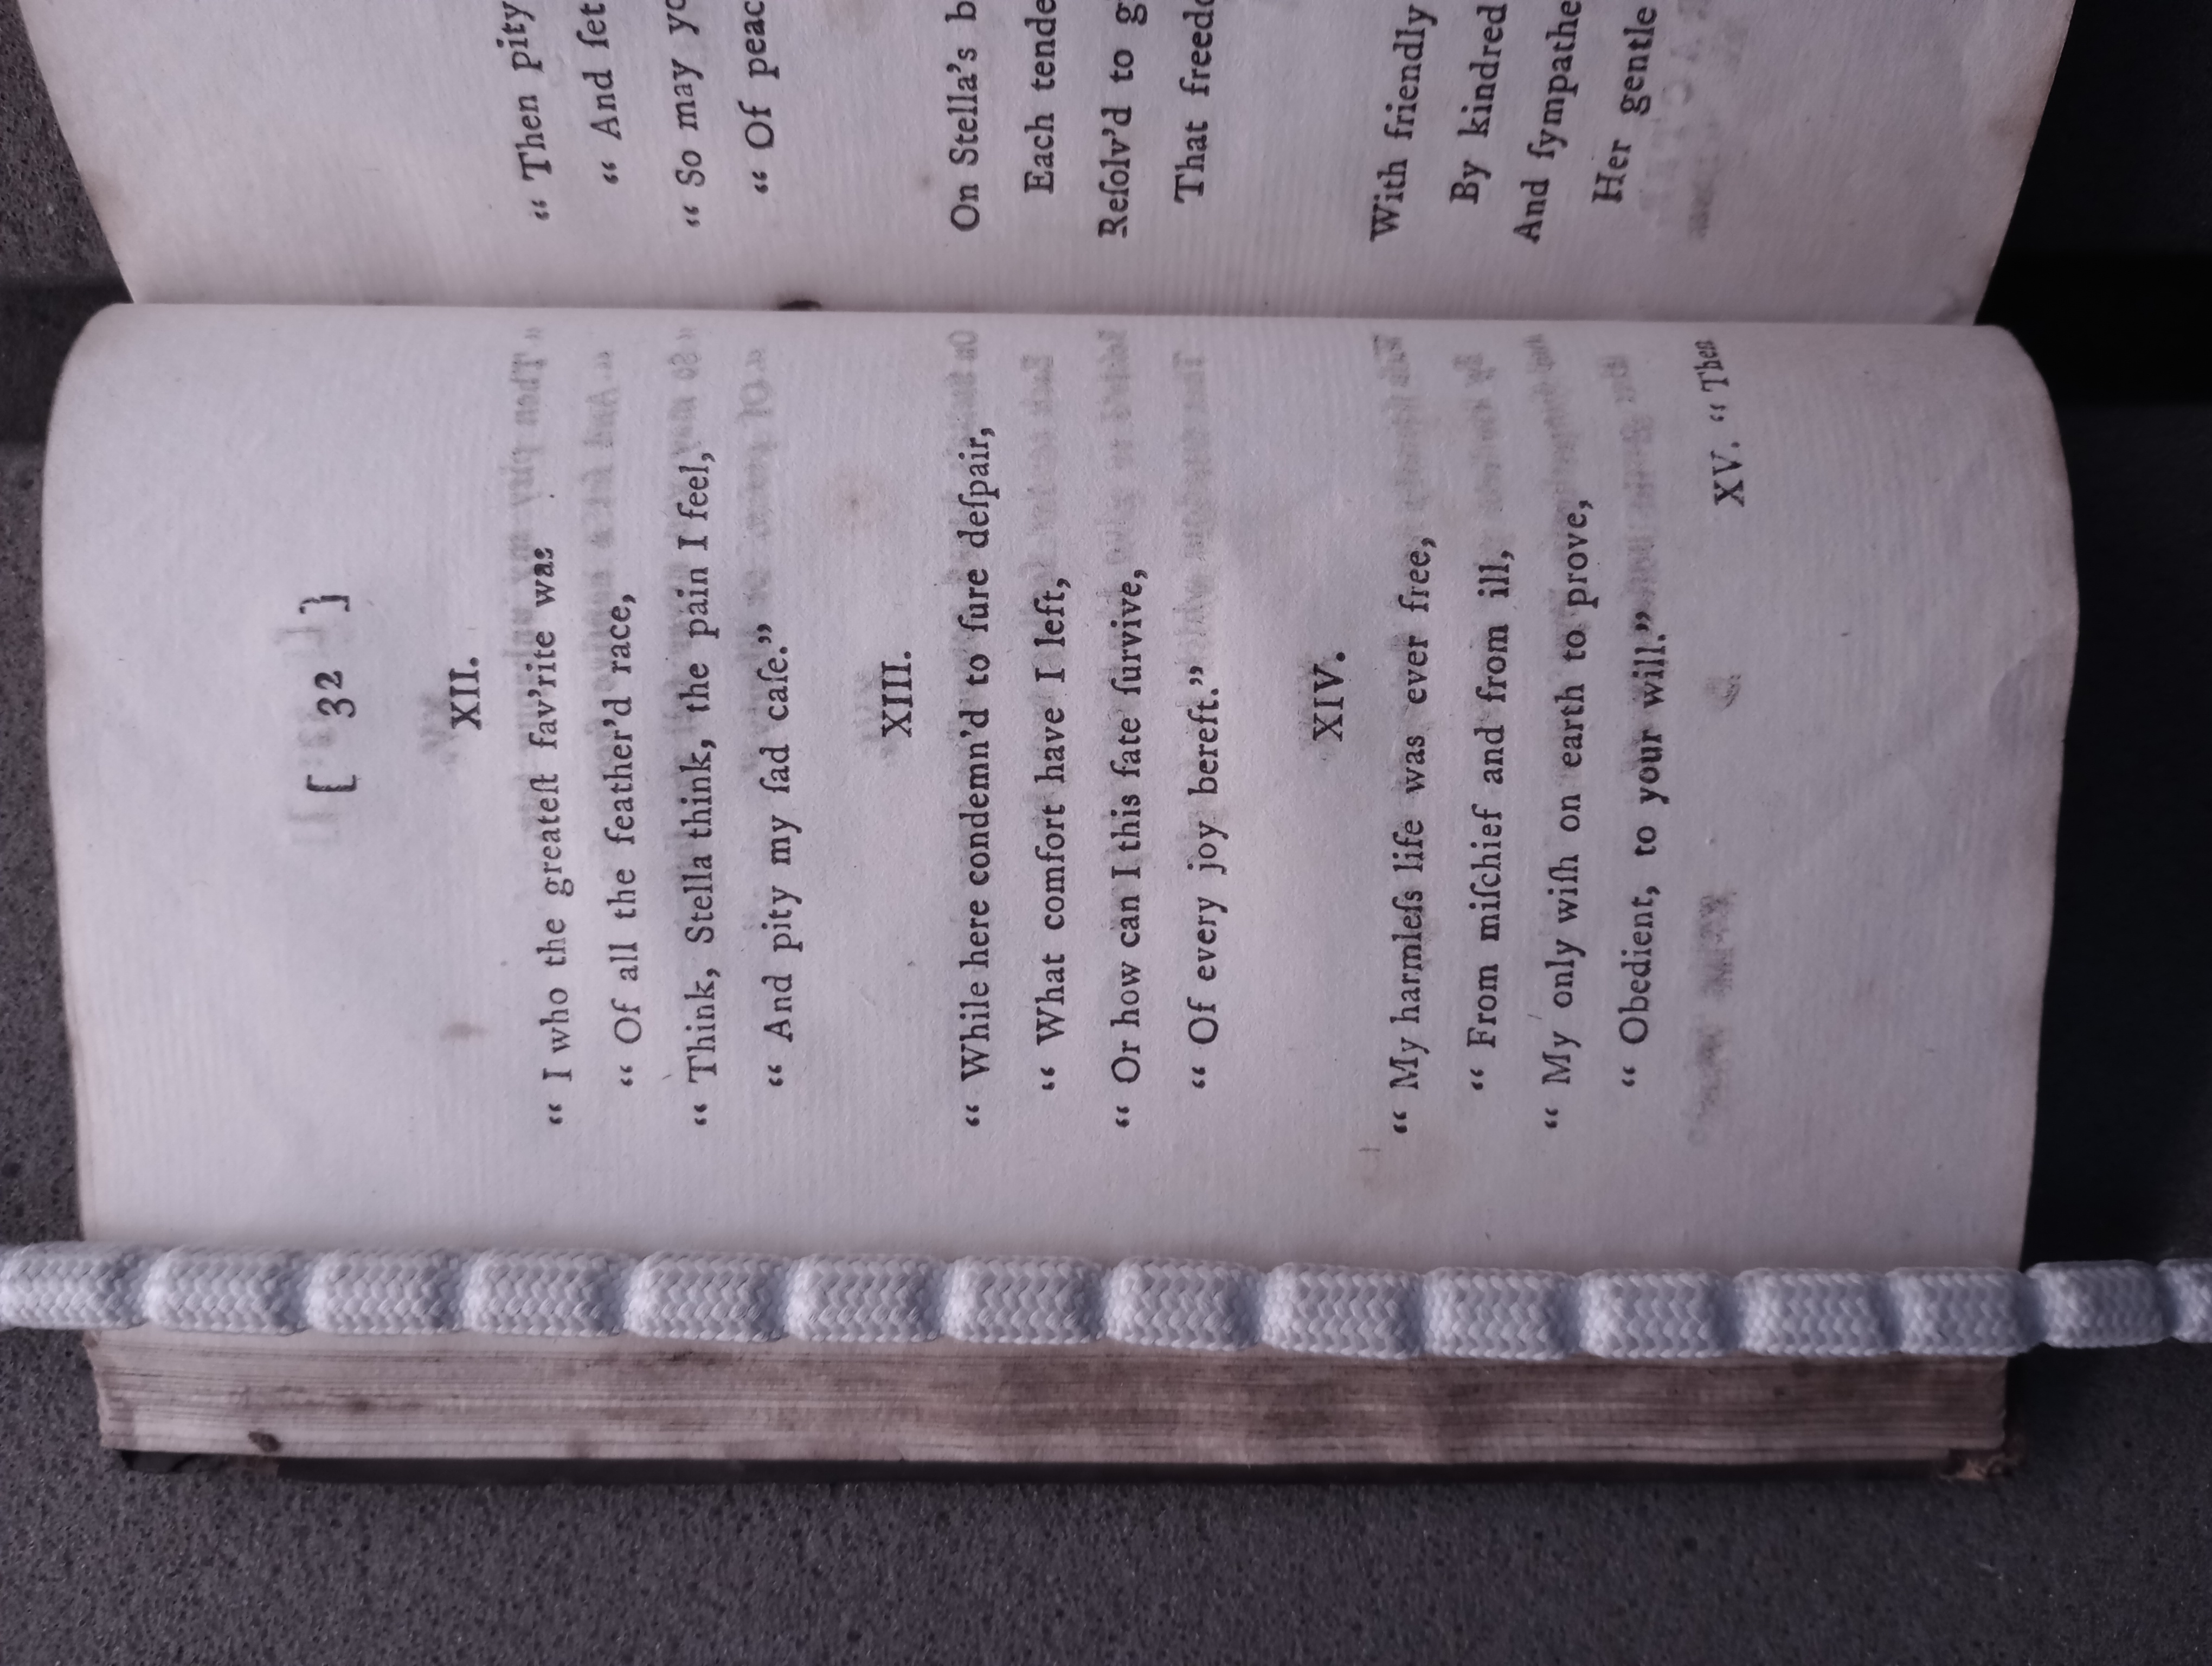 [ 32 ]
XII.
“ I who the greateſt fav’rite was
“ Of all the feather’d race,
“ Think, Stella think, the pain I feel,
“ And pity my ſad caſe.”
XIII.
“ While here condemn’d to ſure deſpair,
“ What comfort have I left,
“ Or how can I this fate ſurvive,
“ Of every joy bereft.”
XIV.
“ My harmleſs life was ever free,
“ From miſchief and from ill,
“ My only wiſh on earth to prove,
“ Obedient, to your will.”
XV. “ Then
“ Then pity
“ And ſet
“ So may
“ Of
On Stella’s
Each
Reſolv’d to
That
With friendly
By kindred
And
Her gentle